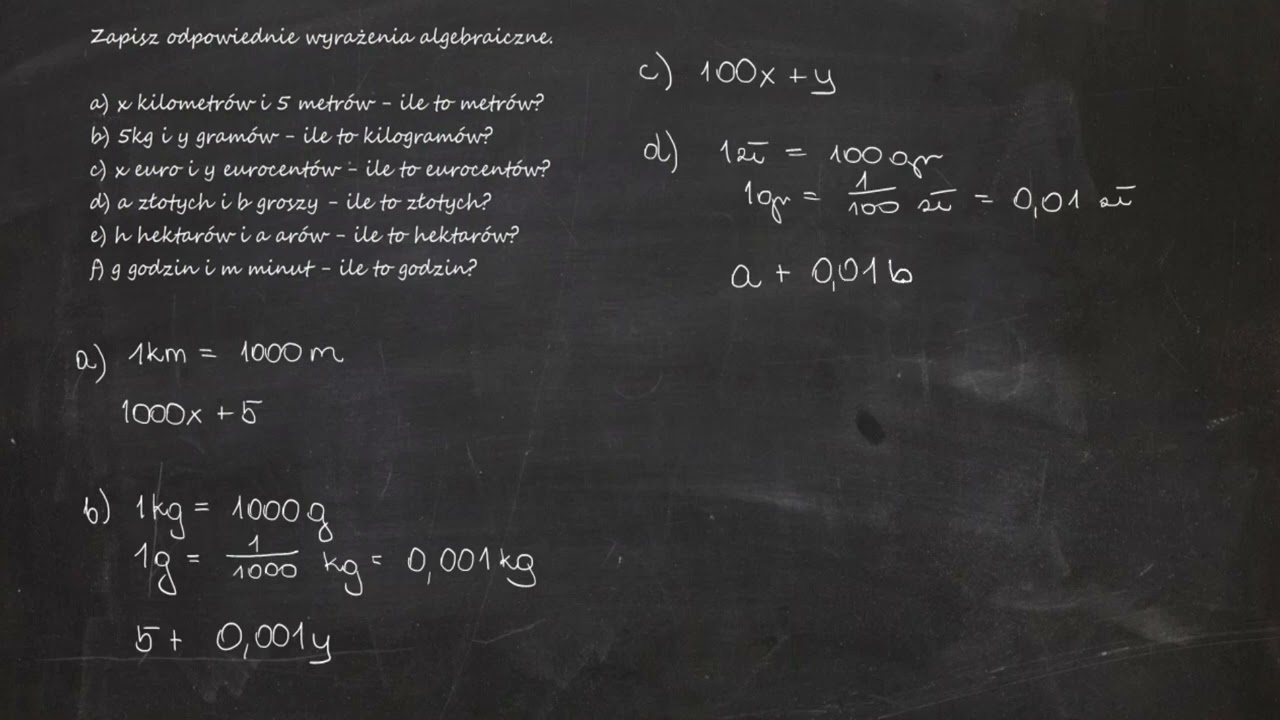 Zapisz odpowiednie wyrażenia algebraiczne.
a) x kilometrów i 5 metrów - ile to metrów?
b) 5kg i y gramów - ile to kilogramów?
c) x euro i y eurocentów - ile to eurocentów?
d) a złotych i b groszy - ile to złotych?
e) h hektarów i a arów - ile to hektarów?
f) g godzin i m minut - ile to godzin?
a) 1km = 1000 m
1000x + 5
b) 1kg = 1000 g
1g = 1/1000 kg = 0,001 kg
5 + 0,001y
c) 100x + y
d) 1zł = 100 gr
1gr = 1/100 zł = 0,01 zł
a + 0,01b